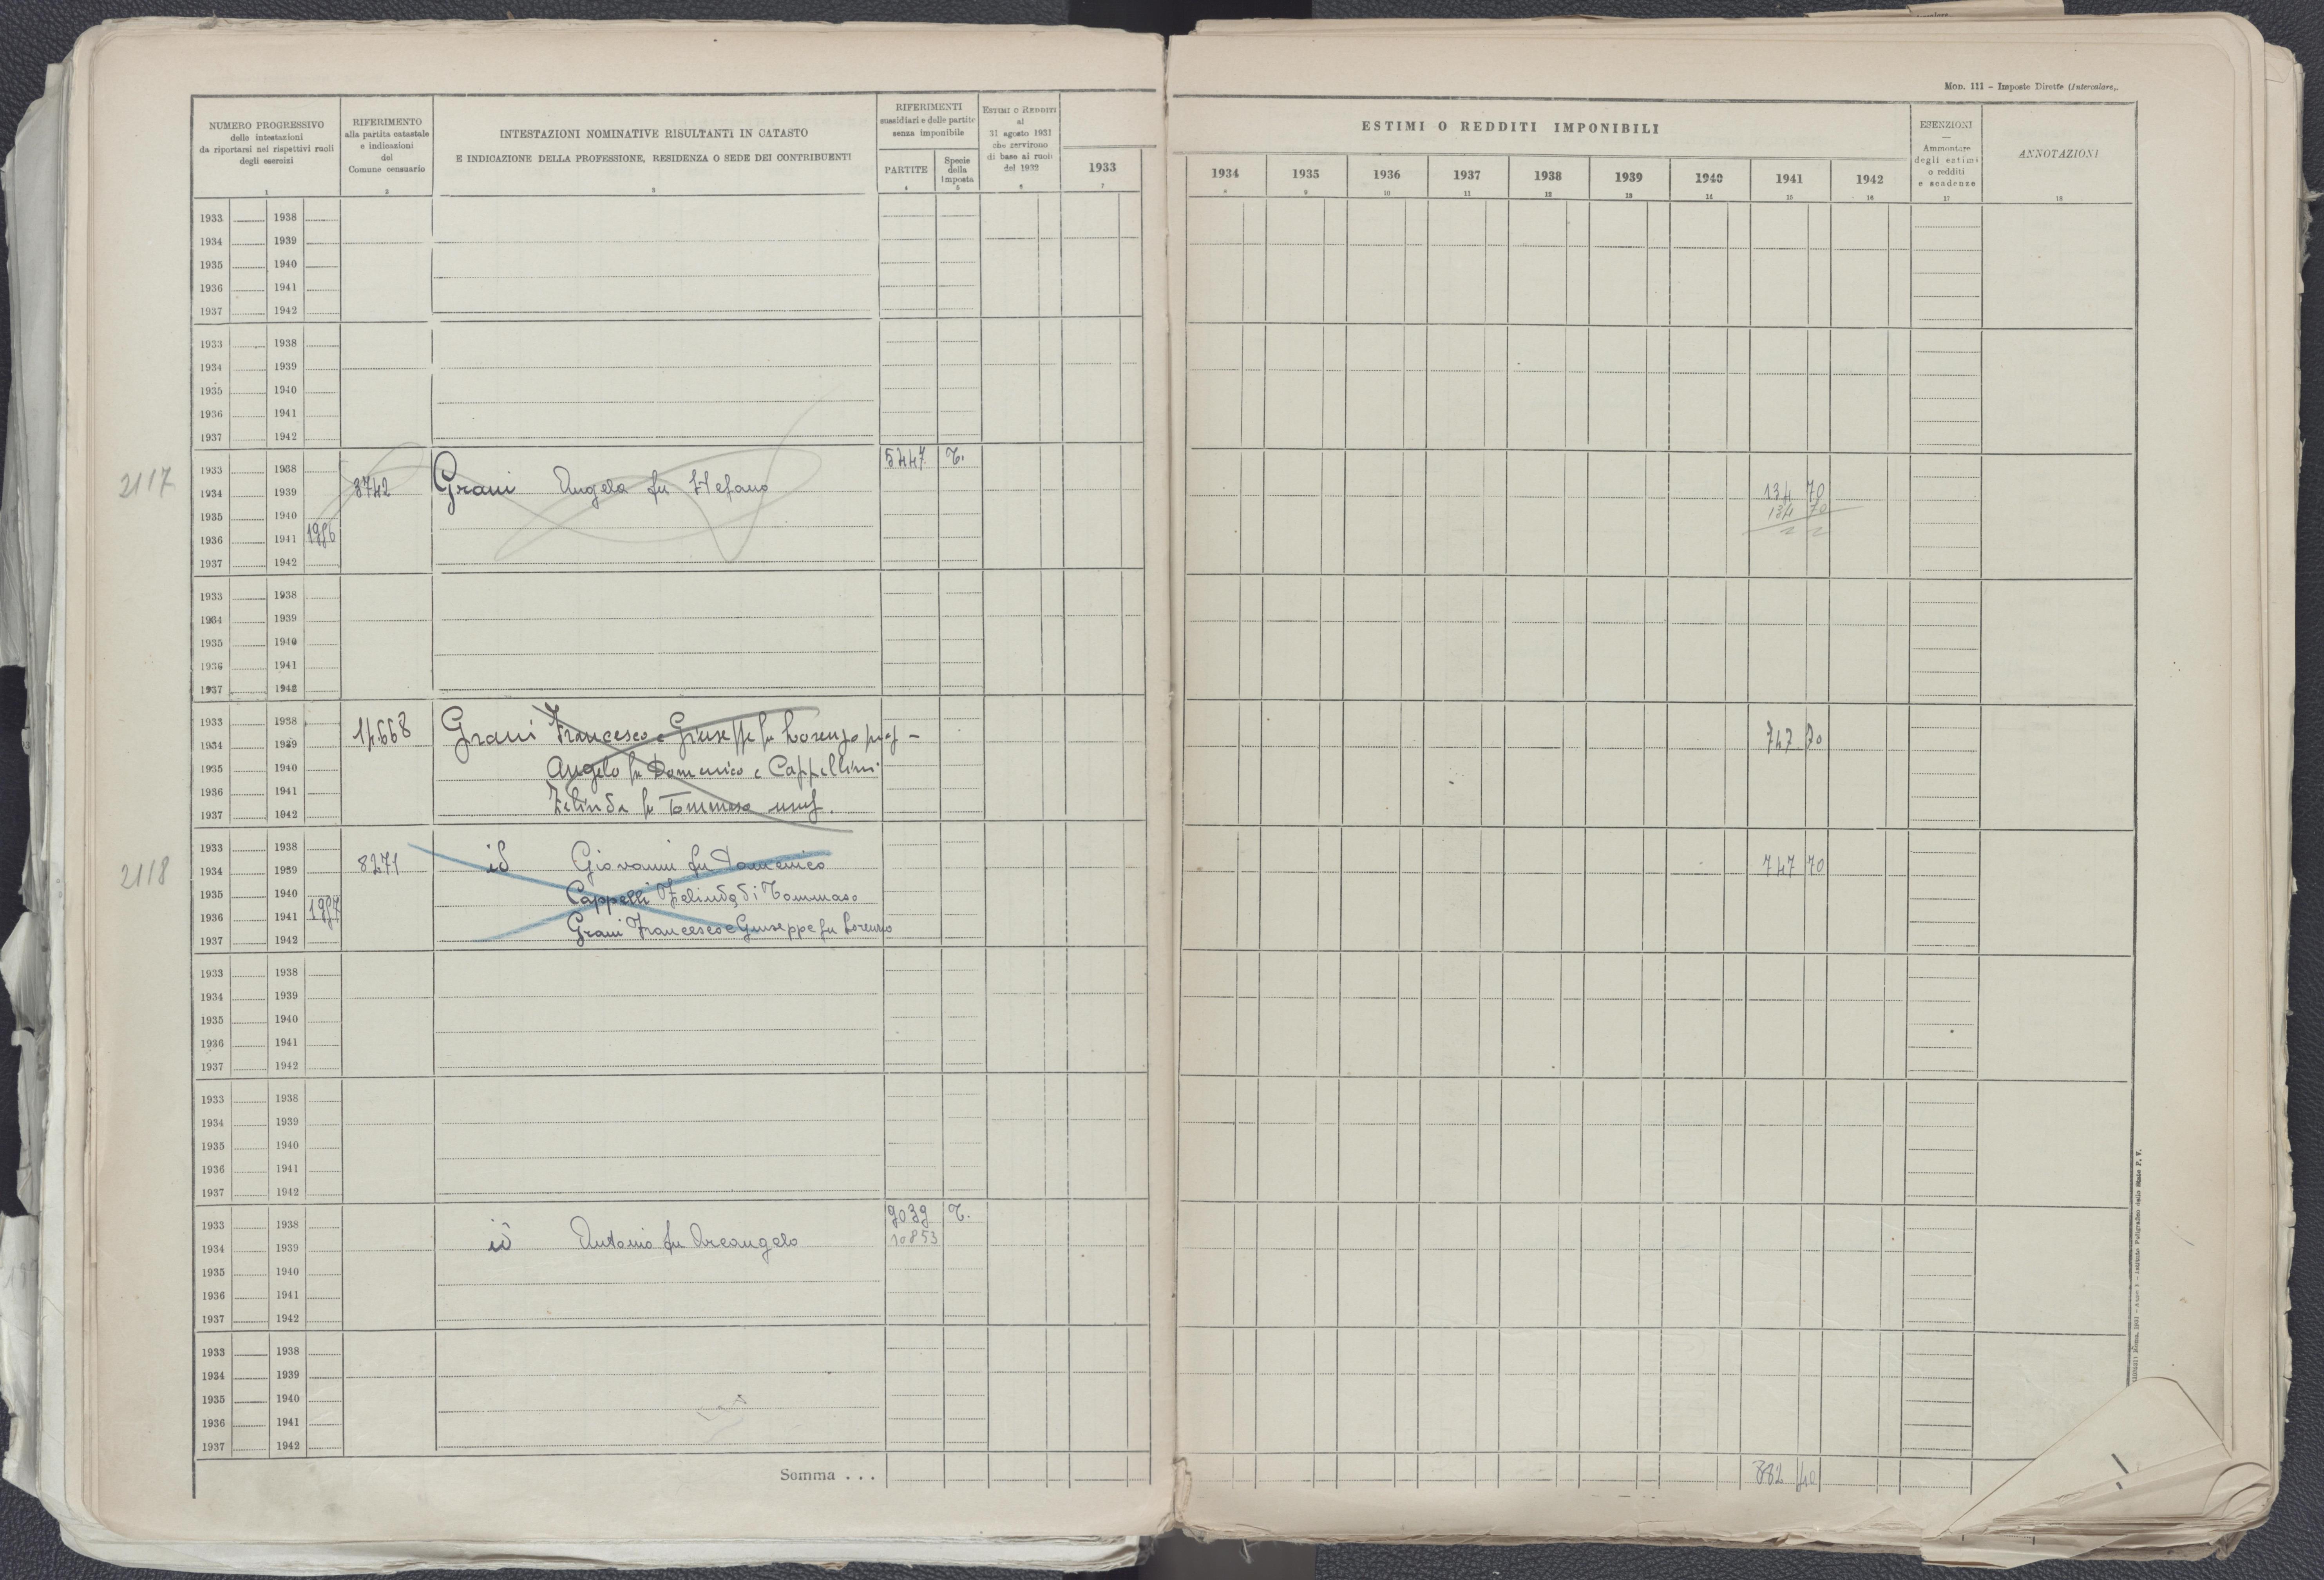 Mod. 111 - Imposte Dirette (Intercalare).
NUMERO PROGRESSIVO
delle intestazioni
da riportarsi nei rispettivi ruoli
degli esercizi
1
RIFERIMENTO
alla partita catastale
e indicazioni
del
Comune censuario
2
INTESTAZIONI NOMINATIVE RISULTANTI IN CATASTO
E INDICAZIONE DELLA PROFESSIONE, RESIDENZA O SEDE DEI CONTRIBUENTI
3
RIFERIMENTI
sussidiari e delle partite
senza imponibile
PARTITE
4
Specie
della
imposta
5
ESTIMI O REDDITI
al
31 agosto 1931
che servirono
di base ai ruoli
del 1932
6
1933
7
ESTIMI O REDDITI IMPONIBILI
1934 1935 1936 1937 1938 1939 1940 1941 1942
8 9 10 11 12 13 14 15 16
ESENZIONI
Ammontare
degli estimi
o redditi
e scadenze
17
ANNOTAZIONI
18
1933 1938
1934 1939
1935 1940
1936 1941
1937 1942
1933 1938
1934 1939
1935 1940
1936 1941
1937 1942
1933 1938 5447 T.
2117 1934 1939 3742 Grani Angela fu Stefano 134 70
1935 1940 134 70
1936 1941 1986
1937 1942
1933 1938
1934 1939
1935 1940
1936 1941
1937 1942
1933 1938
1934 1939 14668 Grani Francesco e Giuseppe fu Lorenzo 747 70
1935 1940 Angelo fu Domenico e Cappellini
1936 1941
1937 1942 Zelinda fu Tommaso usuf.
1933 1938
2118 1934 1939 8271 id Giovanni fu Domenico 747 70
1935 1940 Cappelli Zelinda di Tommaso
1936 1941 1987
1937 1942 Grani Francesco e Giuseppe fu Lorenzo
1933 1938
1934 1939
1935 1940
1936 1941
1937 1942
1933 1938
1934 1939
1935 1940
1936 1941
1937 1942
1933 1938 9039 T.
1934 1939 id Antonio fu Arcangelo 10853
1935 1940
1936 1941
1937 1942
1933 1938
1934 1939
1935 1940
1936 1941
1937 1942
Somma . . . 882 40